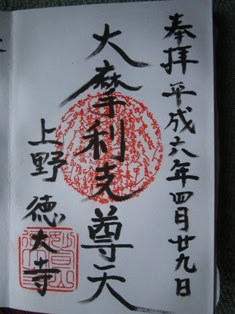 奉拝 平成六年四月廿九日
大摩利支尊天
上野 徳大寺